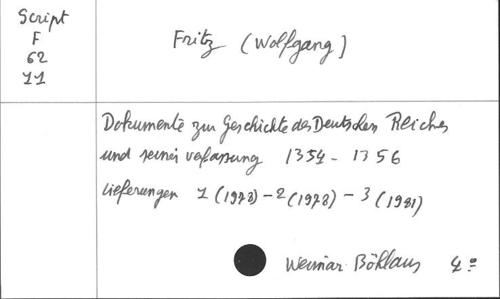 Script
F
62
11
Fritz (Wolfgang)
Dokumente zur Geschichte des Deutschen Reiches
und seiner verfassung 1354 - 1356
Lieferungen 1 (1978) - 2 (1978) - 3 (1981)
Weimar Böhlaus 4°